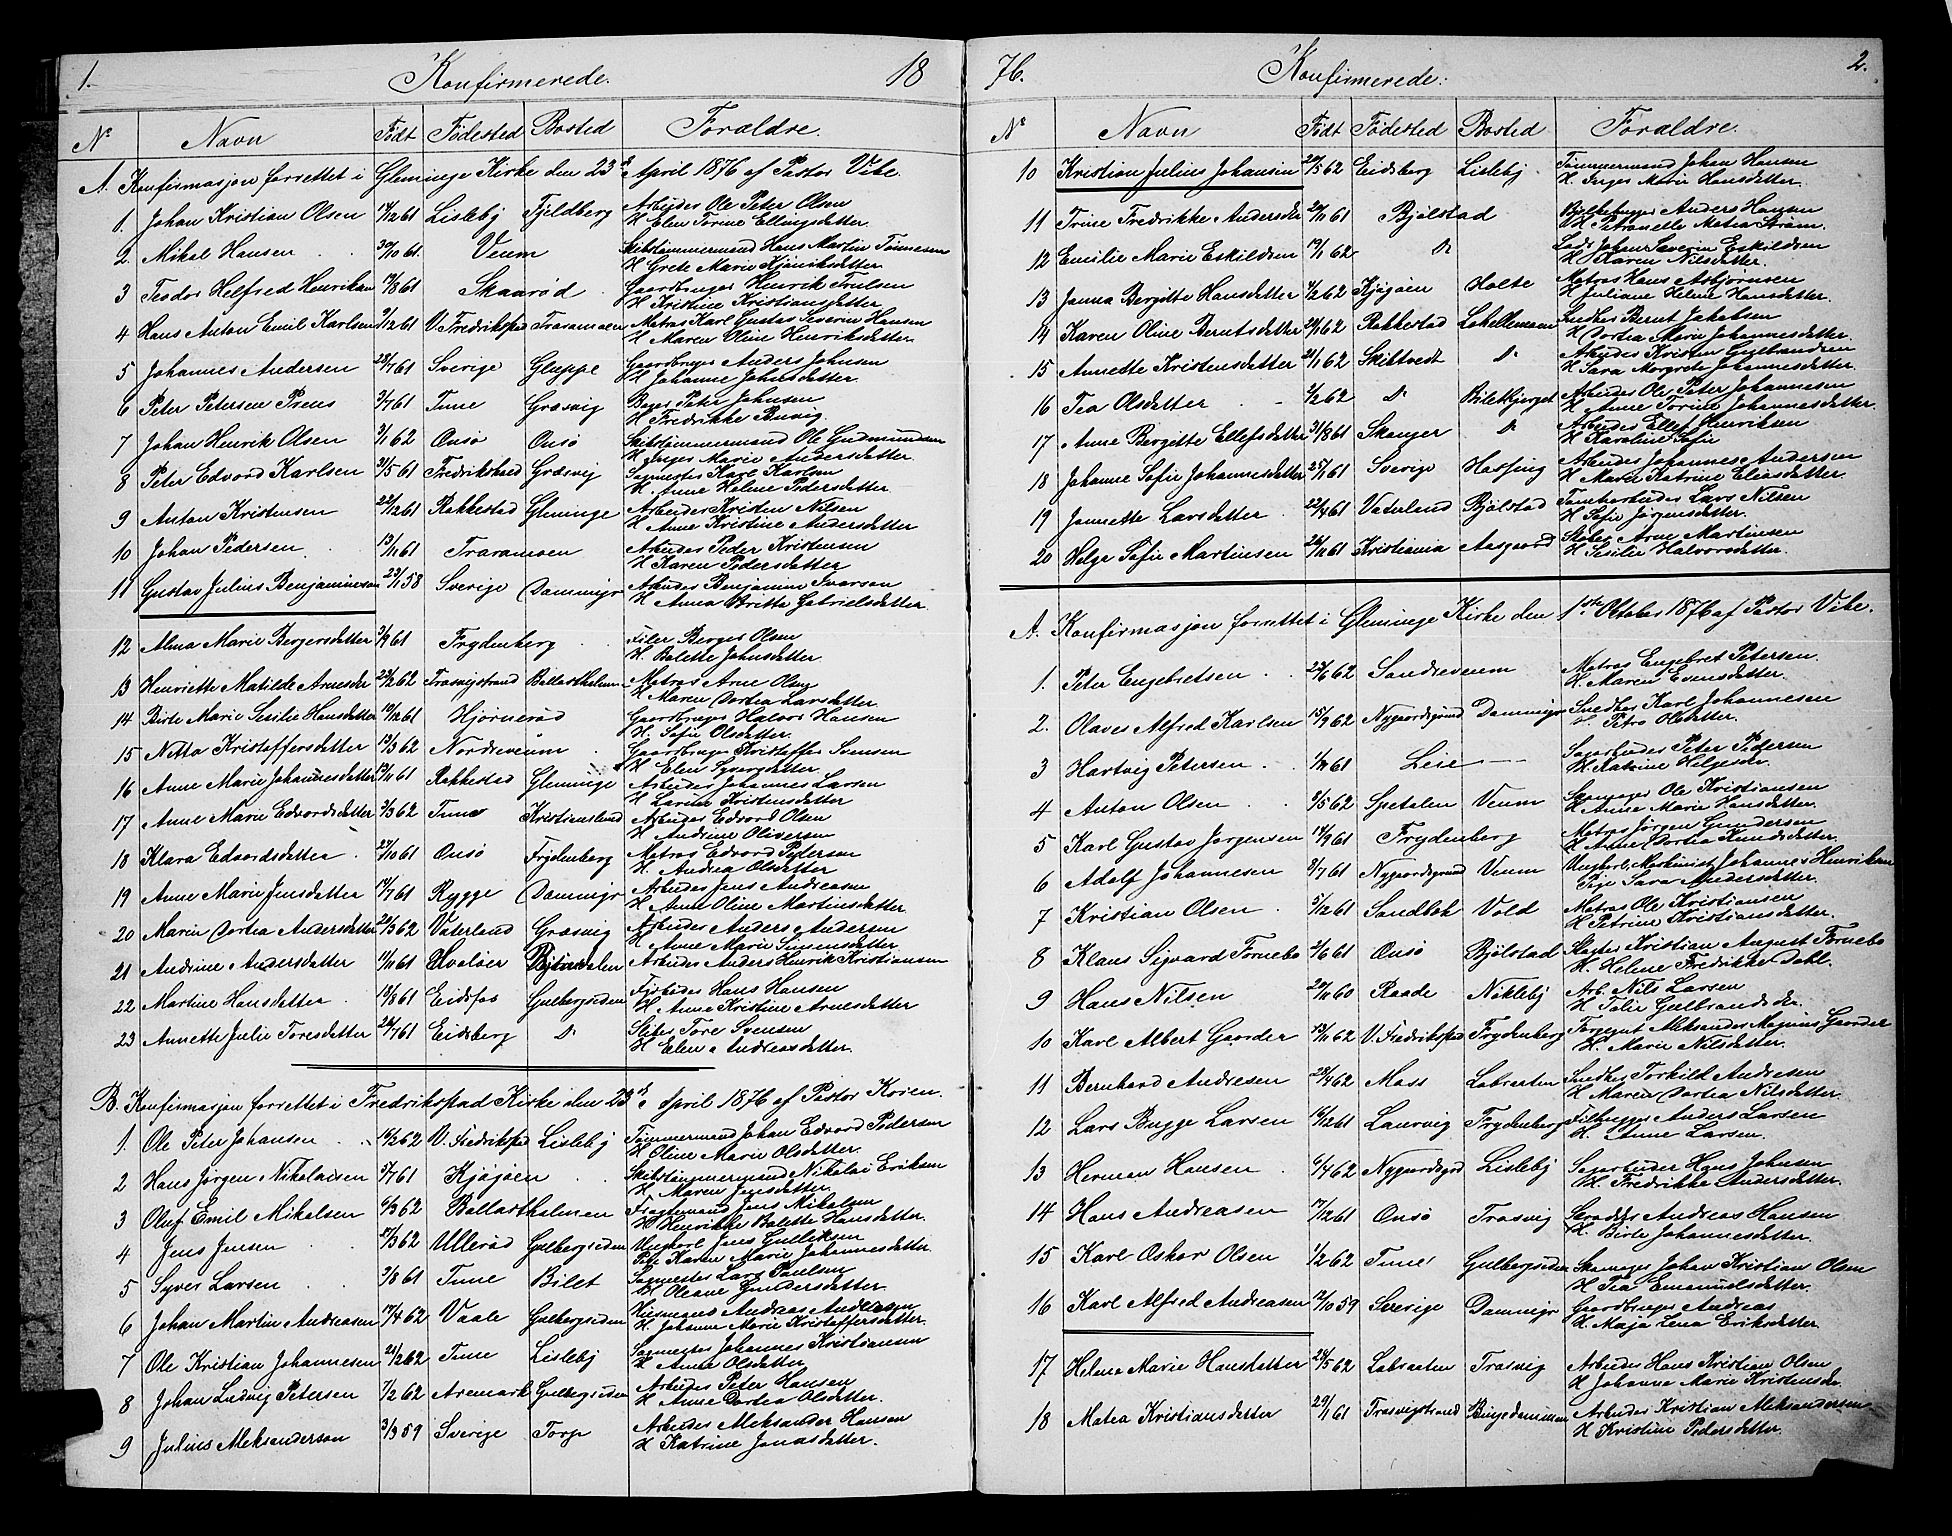 1. Konfirmerede. 18
No Navn Født Fødested Bosted Forældre.
A. Konfirmasjon forrettet i Glemminge Kirke den 23de April 1876 af Pastor Vibe.
1. Johan Kristian Olsen 12/12 61 Lisleby Fjeldberg Arbeider Ole Peter Olsen
H. Elen Torine Ellingsdatter
2. Mikal Hansen 30/10 61. Veum Skibstømmermand Hans Martin Tønnesen
H Grete Marie
3 Teodor Helfred Henriksen /8 61 Skaarød Gaardbruger Henrik Trulsen
H Kristine Kristiansdatter
4 Hans Anton Emil Karlsen 9/12 61 V. Fredrikstad Traramoen Matros Karl Gustav Severin Hansen
H Maren Oline Henriksdatter
5 Johannes Andersen 28/7 61 Sverige Gluppe Gaardbruger Anders Johnsen
H Johanne Johnsdatter
6 Peter Petersen Prens 3/7 61 Tune Græsvig Bager Peter Johnsen
H Fredrikke
7 Johan Henrik Olsen 3/1 62 Onsø Onsø Skibstømmermand Ole Gudmundsen
H. Inger Marie Andersdatter
8 Peter Edvard Karlsen 3/5 61 Fredrikshald Græsvig Sagmester Karl Karlsen
H. Anne Helene Pedersdatter
9 Anton Kristensen 22/12 61 Rakkestad Glemminge Arbeider Kristen Nilsen
H Anne Kristine Andersdatter
10 Johan Pedersen 13/11 61 Traramoen Arbeider Peder Kristensen
H Karen Pedersdatter
11 Gustav Julius Benjaminsen 23/1 58 Sverige Dammyr Arbeider Benjamin Ivarson
H Anna Britta Gabrielsdatter
12 Alma Marie Bergersdatter 3/9 61 Frydenberg Filer Berger Olsen
H. Bolette Johnsdatter
13 Henriette Matilde Arnesdr 20/2 62 Trosvigstrand Ballastholmen Matros Arne Olsen
H Maren Dortea Larsdatter
14 Birte Marie Sesilie Hansdatter 19/12 61 Hjørnerød Gaardbruger Halvor Hansen
H. Sofie Olsdatter
15 Netta Kristoffersdatter 13/3 62 Nordreveum Gaardbruger Kristoffer Svensen
H Elen Syversdatter
16 Anne Marie Johannesdatter /11 61 Rakkestad Glemminge Arbeider Johannes Larsen
H Larine Kristensdatter
17 Anne Marie Edvardsdatter 3/3 62 Tune Kristianslund Arbeider Edvard Olsen
H Andrine Oliversen
18 Klara Edvardsdatter 27/10 61 Onsø Frydenberg Matros Edvard Petersen
H. Andrea Olsdatter
19 Anne Marie Jensdatter 14/7 61 Rygge Dammyr Arbeider Jens Andreasen
H Anne Oline Martinsdatter
20 Maren Dortea Andersdatter 20/3 62 Vaterland Græsvig Arbeider Anders Andersen
H Anne Marie Simensdatter
21 Andrine Andersdatter 11/11 61 Hvaløer Bjørndalen Arbeider Anders Henrik Kristiansen
22 Martine Hansdatter 13/8 61 Eidsfos Gulbergsiden Fyrbøder Hans Hansen
H Anne Kristine Arnesdatter
23 Annette Julie Toresdatter 24/7 61 Eidsberg Do Sliber Tore Svensen
H Elene Andreasdatter.
B. Konfirmasjon forrettet i Fredrikstad Kirke den 23de April 1876 af Pastor Koren.
1. Ole Peter Johansen 14/2 62 V. Fredrikstad Lisleby Tømmermand Johan Edvard Pedersen
H Oline Marie Olsdatter
2 Hans Jørgen Nikolaisen 3/7 61 Kjøjøen Skibstømmermand Nikolai Eriksen
H. Maren Jensdatter.
3 Oluf Emil Mikalsen 6/3 62 Ballastholmen Fragtemand Jens Mikalsen
H Henrikke Bolette Hansdatter.
4 Jens Jensen 27/3 62 Ullerød Gulbergsiden Ungkarl Jens Gulliksen
Pike Karen Marie Johannesdatter.
5 Syver Larsen 3/8 61 Tune Bilet Sagmester Lars Paulsen
H Oleane Gundersdatter.
6 Johan Martin Andreasen 17/4 62 Vaale Gulbergsiden Husmand Andreas Andreasen
H. Johanne Marie Kristoffersdatter.
7 Ole Kristian Johannesen 21/2 62 Tune Lisleby Sagmester Johannes Kristiansen
H Anne Olsdatter
8 Johan Ludvig Petersen 7/2 62 Aremark Gulbergsiden Arbeider Peter Hansen
H Anne Dortea Olsdatter.
9 Julius Aleksanderson 3/3 59 Sverige Torp Arbeider Aleksander Hanson
H Katrine Jonasdatter.
76. Konfirmerede. 2.
No Navn Født Fødested Bosted Forældre.
10 Kristian Julius Johansen 20/5 62 Eidsberg Lisleby Tømmermand Johan Hansen
H. Inger Marie Hansdatter.
11 Trine Fredrikke Andersdr 20/11 61 Bjølstad Anders Hansen
H Petronelle Matea Strøm
12 Emilie Marie Eskildsen 19/1 62 Do Lods Johan Severin Eskildsen
H Karen Nilsdatter.
13 Janna Bergitte Hansdatter 1/2 62 Kjøjøen Holte Matros Hans Asbjørnsen
H Juliane Helene Hansdatter.
14 Karen Oline Berntsdatter 20/1 62 Rakkestad Labellemoen Snedker Bernt Jakobsen
H Dortea Marie Johannesdatter
15 Annette Kristensdatter 21/1 62 Skiptvedt Do Arbeider Kristen Gulbrandsen
H Sara Margrete Johannesdatter.
16 Tea Olsdatter 1/2 62 Do Biletbjerget Arbeider Ole Peter Johannesen
H. Anne Torine Johannesdatter.
17 Anne Bergitte Ellefsdatter 31/8 61 Skanger Do Arbeider Ellef Henriksen
H Karoline Sofie
18 Johanne Sofie Johannesdatter 25/1 61 Sverige Hasfing Arbeider Johannes Andersen
H Maria Katrine Eliasdatter.
19 Jannette Larsdatter 22/4 61 Vaterland Bjølstad Tomtearbeider Lars Nilsen
H Sofie Jørgensdatter.
20 Helga Sofie Martinsen 26/11 61 Kristiania Aasgaard Arne Martinsen
H Sesilie Halvorsdatter.
A. Konfirmasjon forrettet i Glemminge Kirke den 1ste Oktober 1876 af Pastor Vibe.
1. Peter Engebretsen 24/6 62 Søndreveum Matros Engebret Petersen.
H. Maren Evensdatter.
2. Olaves Alfred Karlsen 15/9 62 Nygaardsgrund Dammyr Snedker Karl Johannesen
H. Petra Olsdatter.
3 Hartvig Petersen 1/11 61 Leie Sagarbeider Peter Pedersen
H Katrine Helgesdr.
4 Anton Olsen 9/5 62 Spetalen Veum Skomager Ole Kristiansen
H Anne Marie Hansdatter.
5 Karl Gustav Jørgensen 14/9 61 Frydenberg Matros Jørgen Gundersen
H Anne Dortea Knudsdatter
6 Adolf Johannesen 3/7 61 Nygaardsgrund Veum Ungkarl, Maskinist Johannes Henriksen
Pige Sara Andersdatter.
7 Kristian Olsen 5/12 61 Sandbæk Vold Matros Ole Kristiansen
H Petrine Kristiansdatter.
8 Klaus Sigvard Fornebo 2/6 61 Onsø Bjølstad Kristian August Fornebo
H. Helene Fredrikke Dahl.
9 Hans Nilsen 20/11 60 Raade Nøkleby Arb. Nils Larsen
H Talie Gulbrandsdr.
10 Karl Albert Gaarder 13/11 62 V. Fredrikstad Frydenberg Aleksander Magnus Gaarder
H. Marie Nilsdatter.
11 Bernhard Andresen 28/4 62 Moss Labraaten Snedker Torkild Andresen
H Maren Dortea Nilsdatter
12 Lars Bugge Larsen 14/12 61 Laurvig Frydenberg Filhugger Anders Larsen
H. Anne Larsen.
13 Herman Hansen 6/4 62 Nygaardsgrd Lisleby Sagarbeider Hans Johnsen
H Fredrikke Andersdatter.
14 Hans Andreasen 17/12 61 Onsø Trosvig Skrædder Andreas Hansen
H. Birte Johannesdatter.
15 Karl Oskar Olsen 1/2 62 Tune Gulbergsiden Skomager Johan Kristian Olsen
H Tea Emanuelsdatter.
16 Karl Alfred Andreasen 12/10 59 Sverige Dammyr Gaardbruger Andreas
H. Maja Lena Eriksdatter.
17 Helene Marie Hansdatter 28/5 62 Labraaten Trosvig Arbeider Hans Kristian Olsen
H Johanne Marie Kristensdr.
18 Matea Kristiansdatter 29/1 61 Trosvigstrand Bingedammen Arbeider Kristian Aleksandersen
H Kristine Pedersdatter.